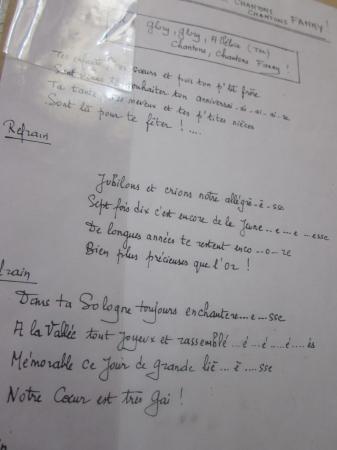 CHANTONS
CHANTONS FANNY!
glory, glory, Alléluia (ter)
Chantons, Chantons Fanny !
sœurs et puis ton p'tit frère
souhaiter ton anniversai-ai-ai-ai-re
Ta tes neveux et tes p'tites nièces
Sont là pour te fêter ! ....
Refrain
Jubilons et crions notre allégrè-è-sse
Sept fois dix c'est encore de la June...e...e...esse
De longues années te restent enco...o-re
Bien plus précieuses que l'or !
frain
Dans ta Sologne toujours enchantere...e...sse
A la Vallée tout Joyeux et rassemblé...é...é....é....és
Mémorable ce Jour de grande liè...è....sse
Notre Cœur est très Gai !